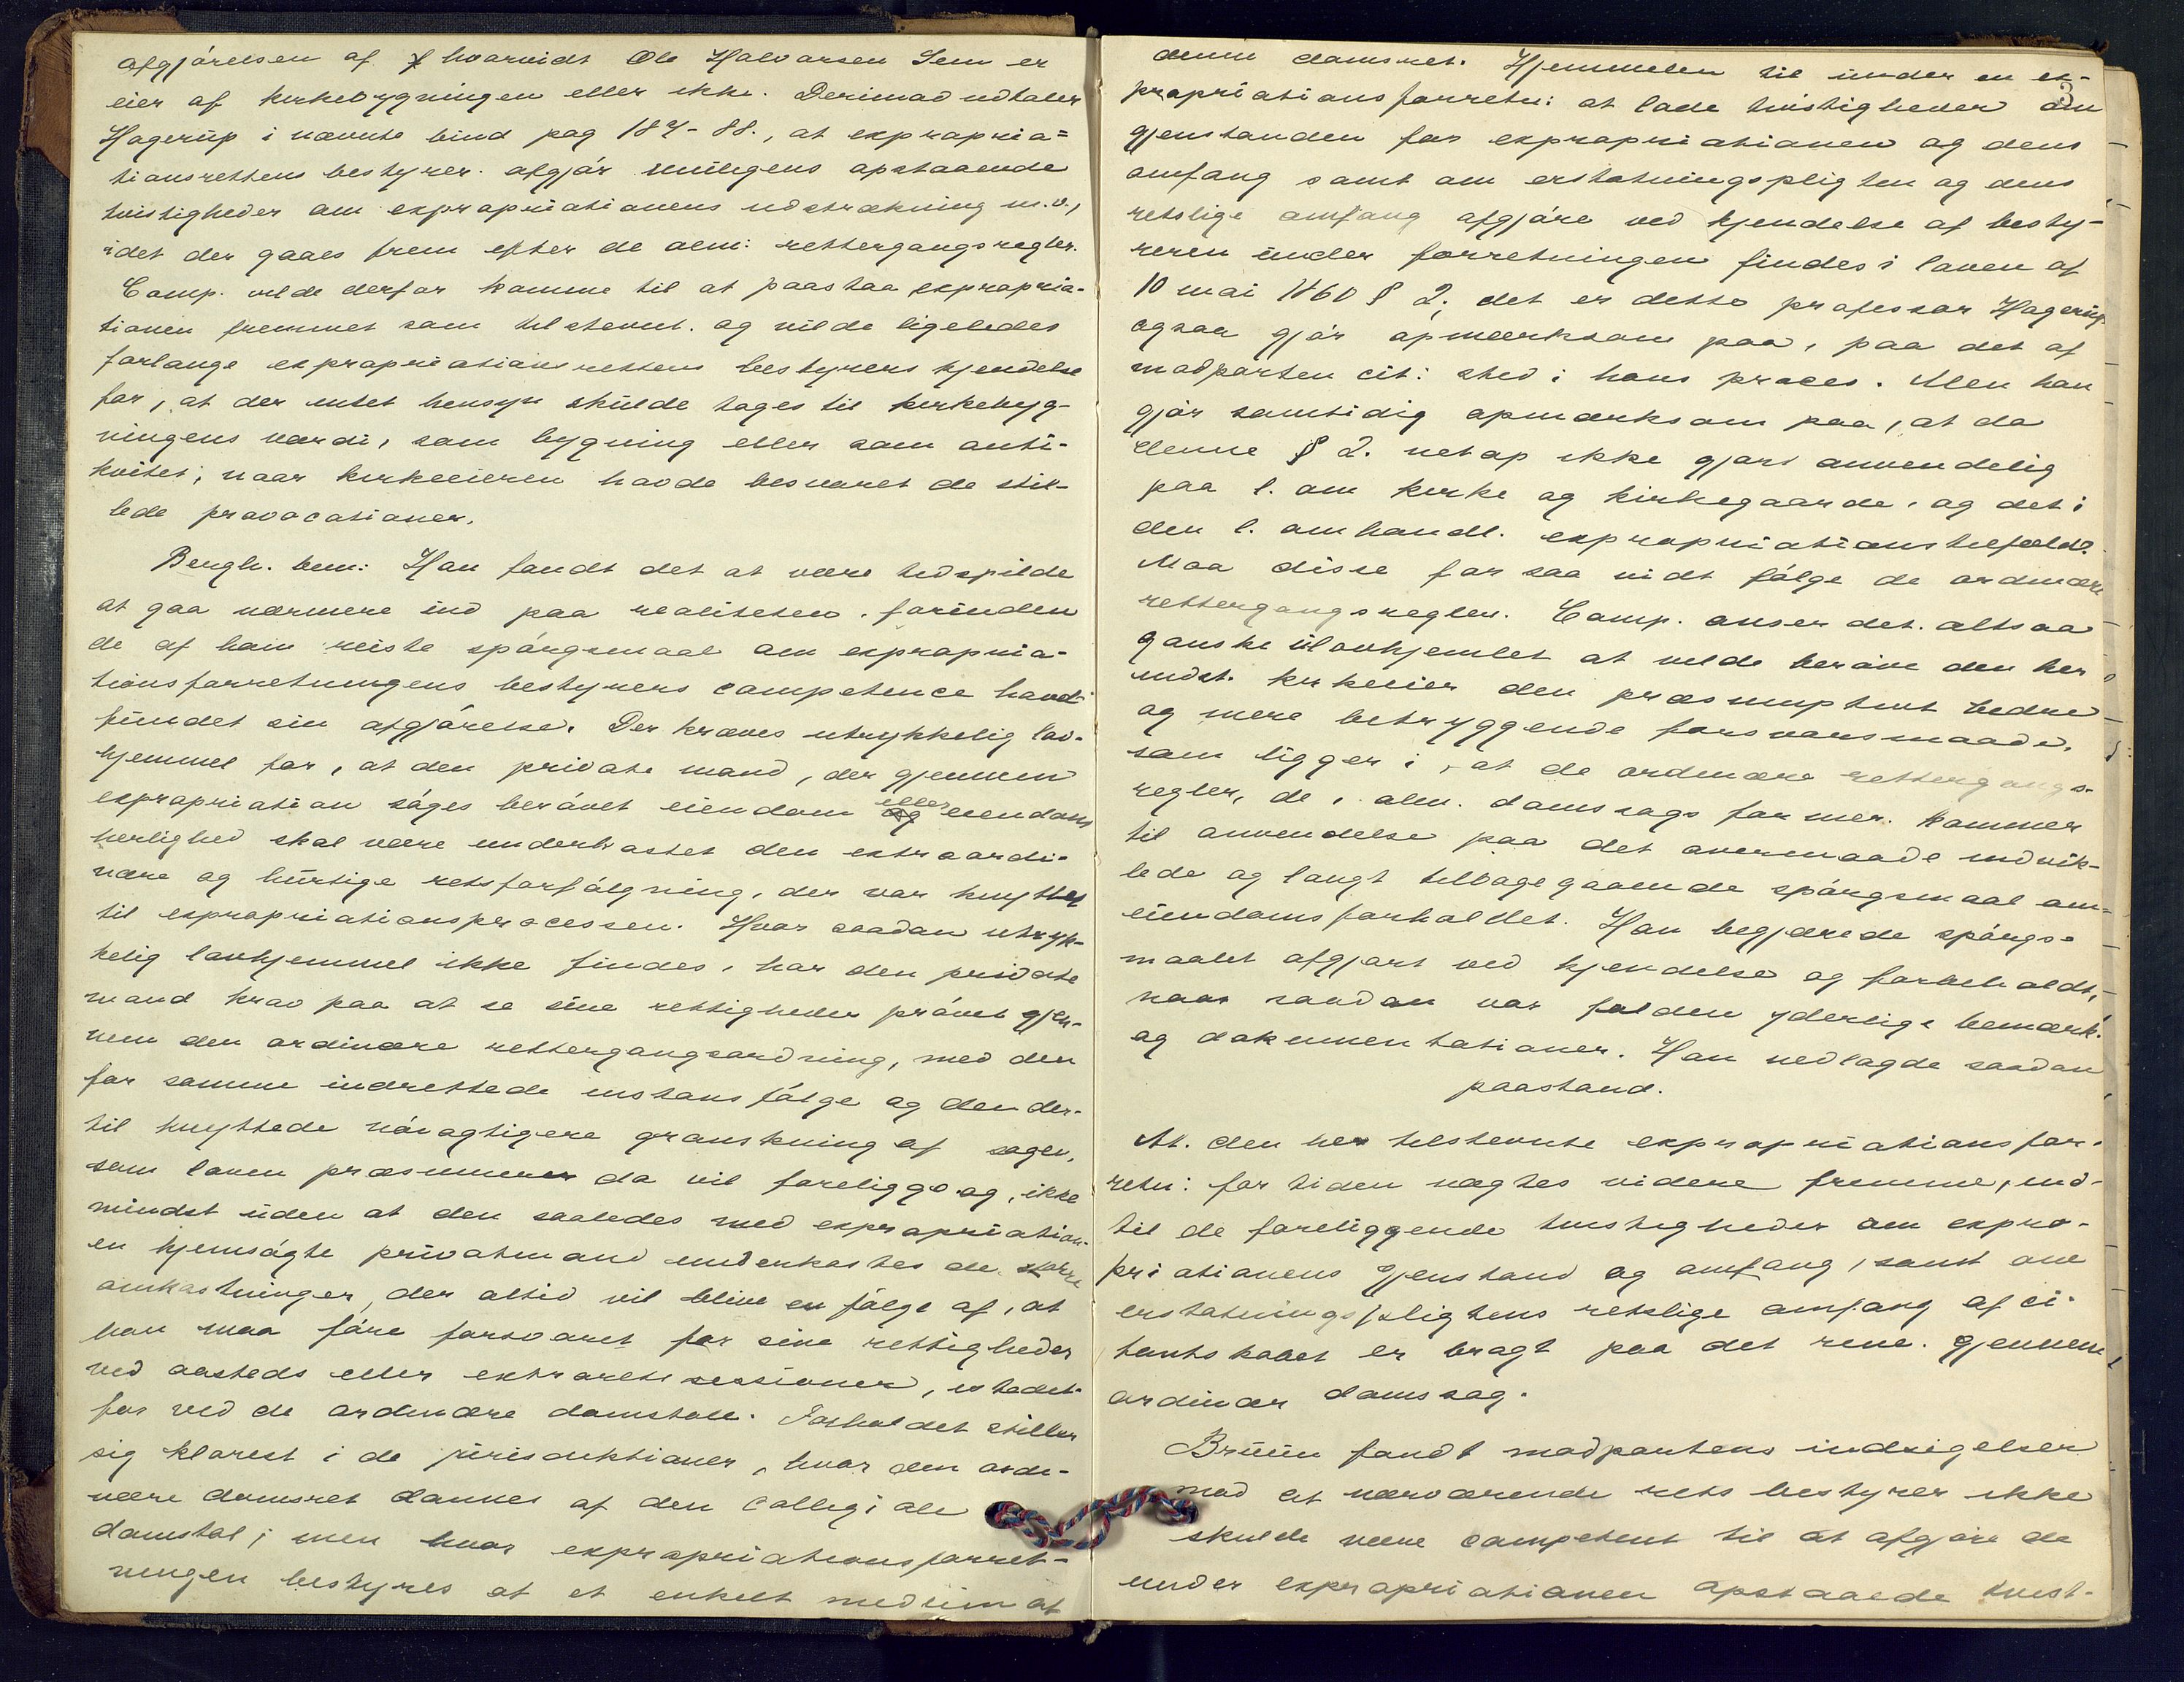 afgjörelsen af hvorvidt Ole Halvorsen Sem er
eier af kirkebygningen eller ikke. Derimod udtaler
Hagerup i nævnte bind pag 187-88., at expropria=
tionsrettens bestyrer afgjör muligens opstaaende
tvistigheder om expropriationens udstrækning m.v.,
idet der gaaes frem efter de alm: rettergangsregler.
Comp. vilde derfor komme til at paastaa expropria-
tionen fremmet som tilstevnt. og vilde ligeledes
forlange expropriationsrettens bestyrers kjendelse
for, at der intet hensyn skulde tages til kirkebyg-
ningens værdi, som bygning eller som anti-
kvitet, naar kirkeeieren havde besvaret de stil-
lede provocationer.
Bergh. bem: Han fandt det at være tidspilde
at gaa nærmere ind paa realiteten, forinden
de af ham reiste spörgsmaal om expropria-
tionsforretningens bestyrers competence havde
fundet sin afgjörelse. Der kræves utrykkelig lov-
hjemmel for, at den private mand, der gjennem
expropriation söges berövet eiendom eller eiendoms
herlighed skal være underkastet den extraordi-
nære og hurtige retsforfölgning, der var knyttet
til expropriationsprocessen. Hvor saadan utryk-
kelig lovhjemmel ikke findes, har den private
mand krav paa at se sine rettigheder prövet gjen-
nem den ordinære rettergangsordning, med den
for samme indrettede instansfölge og den der-
til knyttede nöiagtigere granskning af sagen,
som loven præsumerer da vil foreligge og, ikke
mindst uden at den saaledes med expropriation-
en hjemsögte privatmand underkastes de större
omkostninger, der altid vil blive en fölge af, at
han maa före forsvaret for sine rettigheder
ved aasteds eller extraretssessioner, istedet-
for ved de ordinære domstole. Forholdet stiller
sig klarest i de jurisdiktioner, hvor den ordi-
nære domsret dannes af den collegiale
domstol; men hvor expropriationsforret-
ningen bestyres af et enkelt medlem af
3
denne domsret. Hjemmelen til under en ex-
propriationsforretn: at lade tvistigheder om
gjenstanden for expropriationen og dens
omfang samt om erstatningspligten og dens
retslige omfang afgjöre ved kjendelse af besty-
reren under forretningen findes i loven af
10 mai 1860 § 2; det er dette professor Hagerup
ogsaa gjör opmærksom paa, paa det af
modparten cit: sted i hans proces. Men han
gjör samtidig opmærksom paa, at da
denne § 2. netop ikke gjort anvendelig
paa l. om kirke og kirkegaarde, og det i
den l. omhandl. expropriationstilfæld.
Maa disse forsaavidt fölge de ordinære
rettergangsregler. Comp. anser det altsaa
ganske ulovhjemlet at vilde beröve den her
indst. kirkeeier den præsumptivt bedre
og mere betryggende forsvarsmaade,
som ligger i, at de ordinære rettergangs-
regler, de i alm. domssags former kommer
til anvendelse paa det overmaade indvik-
lede og langt tilbagegaaende spörgsmaal om
eiendomsforholdet. Han begjærede spörgs-
maalet afgjort ved kjendelse og forbeholdt,
naar saadan var falden yderlige bemærk:
og dokumentationer. Han nedlagde saadan
paastand.
At. den her tilstevnte expropriationsfor-
retn: for tiden nægtes videre fremme, ind-
til de foreliggende tvistigheder om expro-
priationens gjenstand og omfang, samt om
erstatningspligtens retslige omfang af ci-
tantskabet er bragt paa det rene gjennem
ordinær domssag.
Bruun fandt modpartens indsigelser
mod at nærværende rets bestyrer ikke
skulde være competent til at afgjöre de
under expropriationen opstaaede tvist-